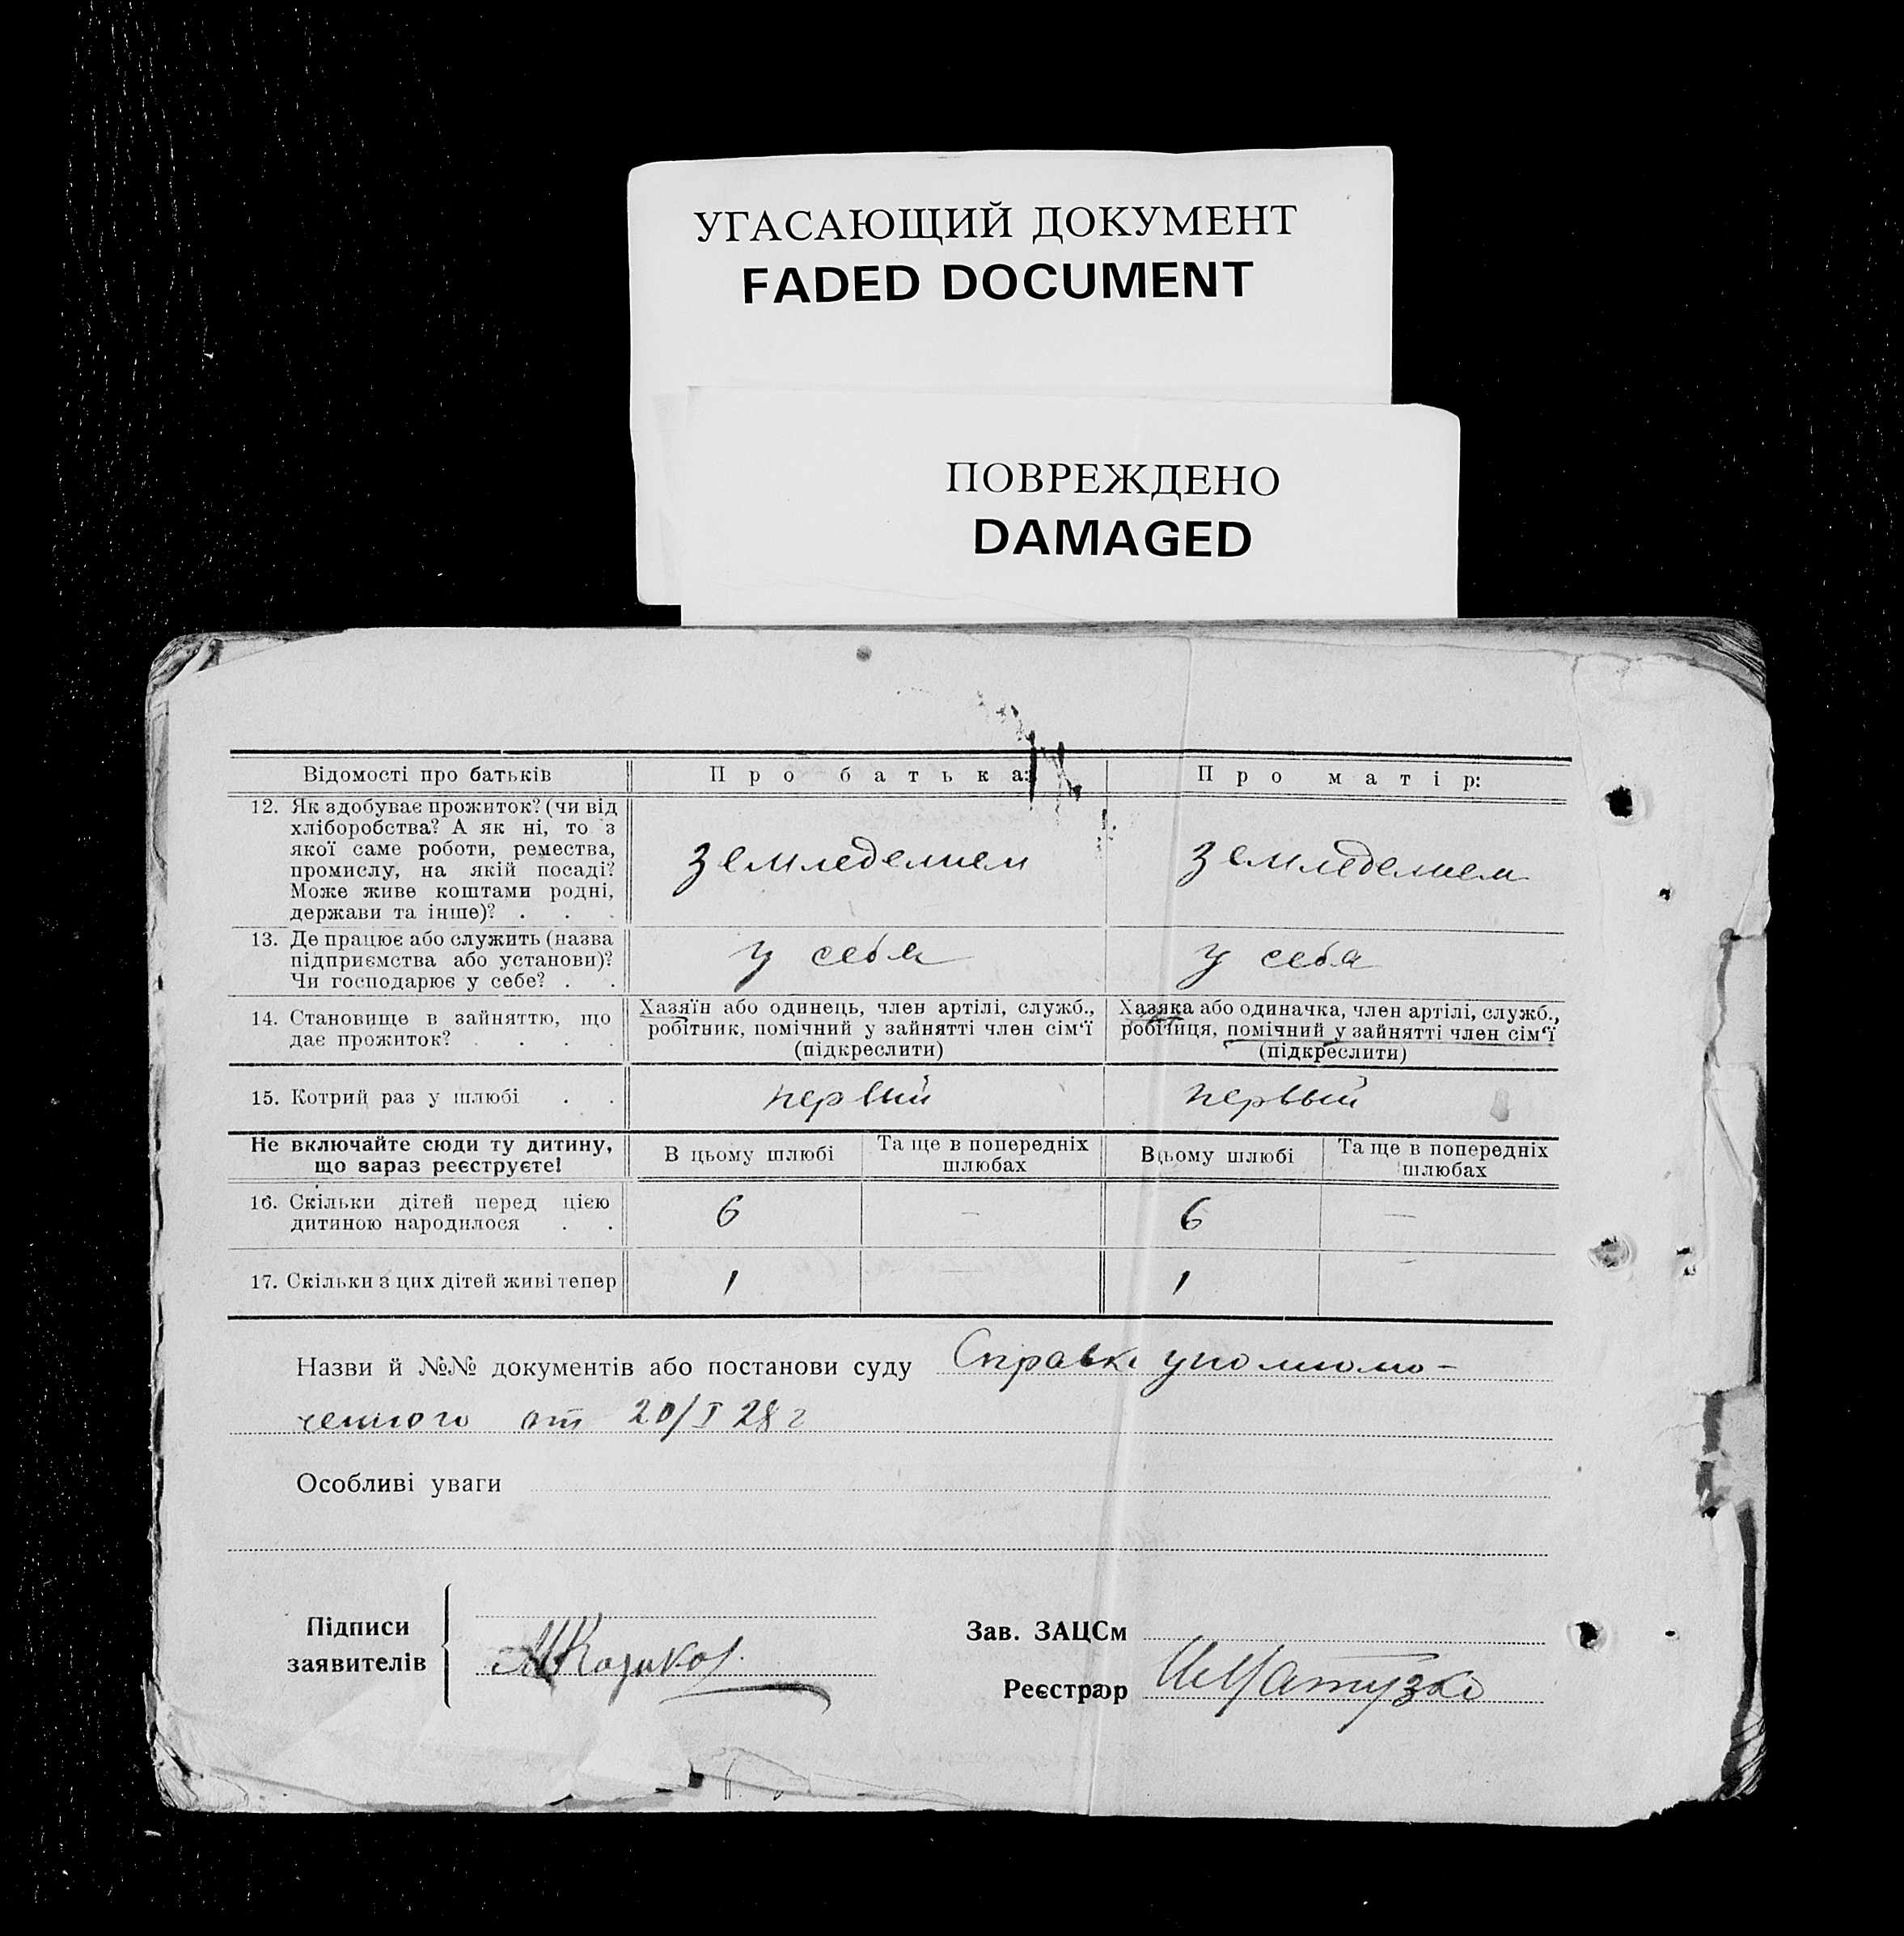 УГАСАЮЩИЙ ДОКУМЕНТ
FADED DOCUMENT
ПОВРЕЖДЕНО
DAMAGED
Відомості про батьків
Про батька:
Про матір:
12. Як здобуває прожиток? (чи від
хліборобства? А як ні, то з
якої саме роботи, ремества,
промислу, на якій посаді?
Може живе коштами родні,
держави та інше)? . . .
земледелием
земледелием
13. Де працює або служить (назва
підприємства або установи)?
Чи господарює у себе? . .
у себя
у себя
14. Становище в зайняттю, що
дає прожиток? . . . .
Хазяїн або одинець, член артілі, служб.,
робітник, помічний у зайнятті член сім‘ї
(підкреслити)
Хазяка або одиначка, член артілі, служб.,
робітниця, помічний у зайнятті член сім‘ї
(підкреслити)
15. Котрий раз у шлюбі . .
первый
первый
Не включайте сюди ту дитину,
що зараз реєструєте!
В цьому шлюбі
Та ще в попередніх
шлюбах
В цьому шлюбі
Та ще в попередніх
шлюбах
16. Скільки дітей перед цією
дитиною народилося . .
6
—
6
—
17. Скільки з цих дітей живі тепер
1
—
1
—
Назви й №№ документів або постанови суду Справка уполномо-
ченного от 20/I 28 г
Особливі уваги
Підписи
заявителів
Зав. ЗАЦСм
Реєстрар